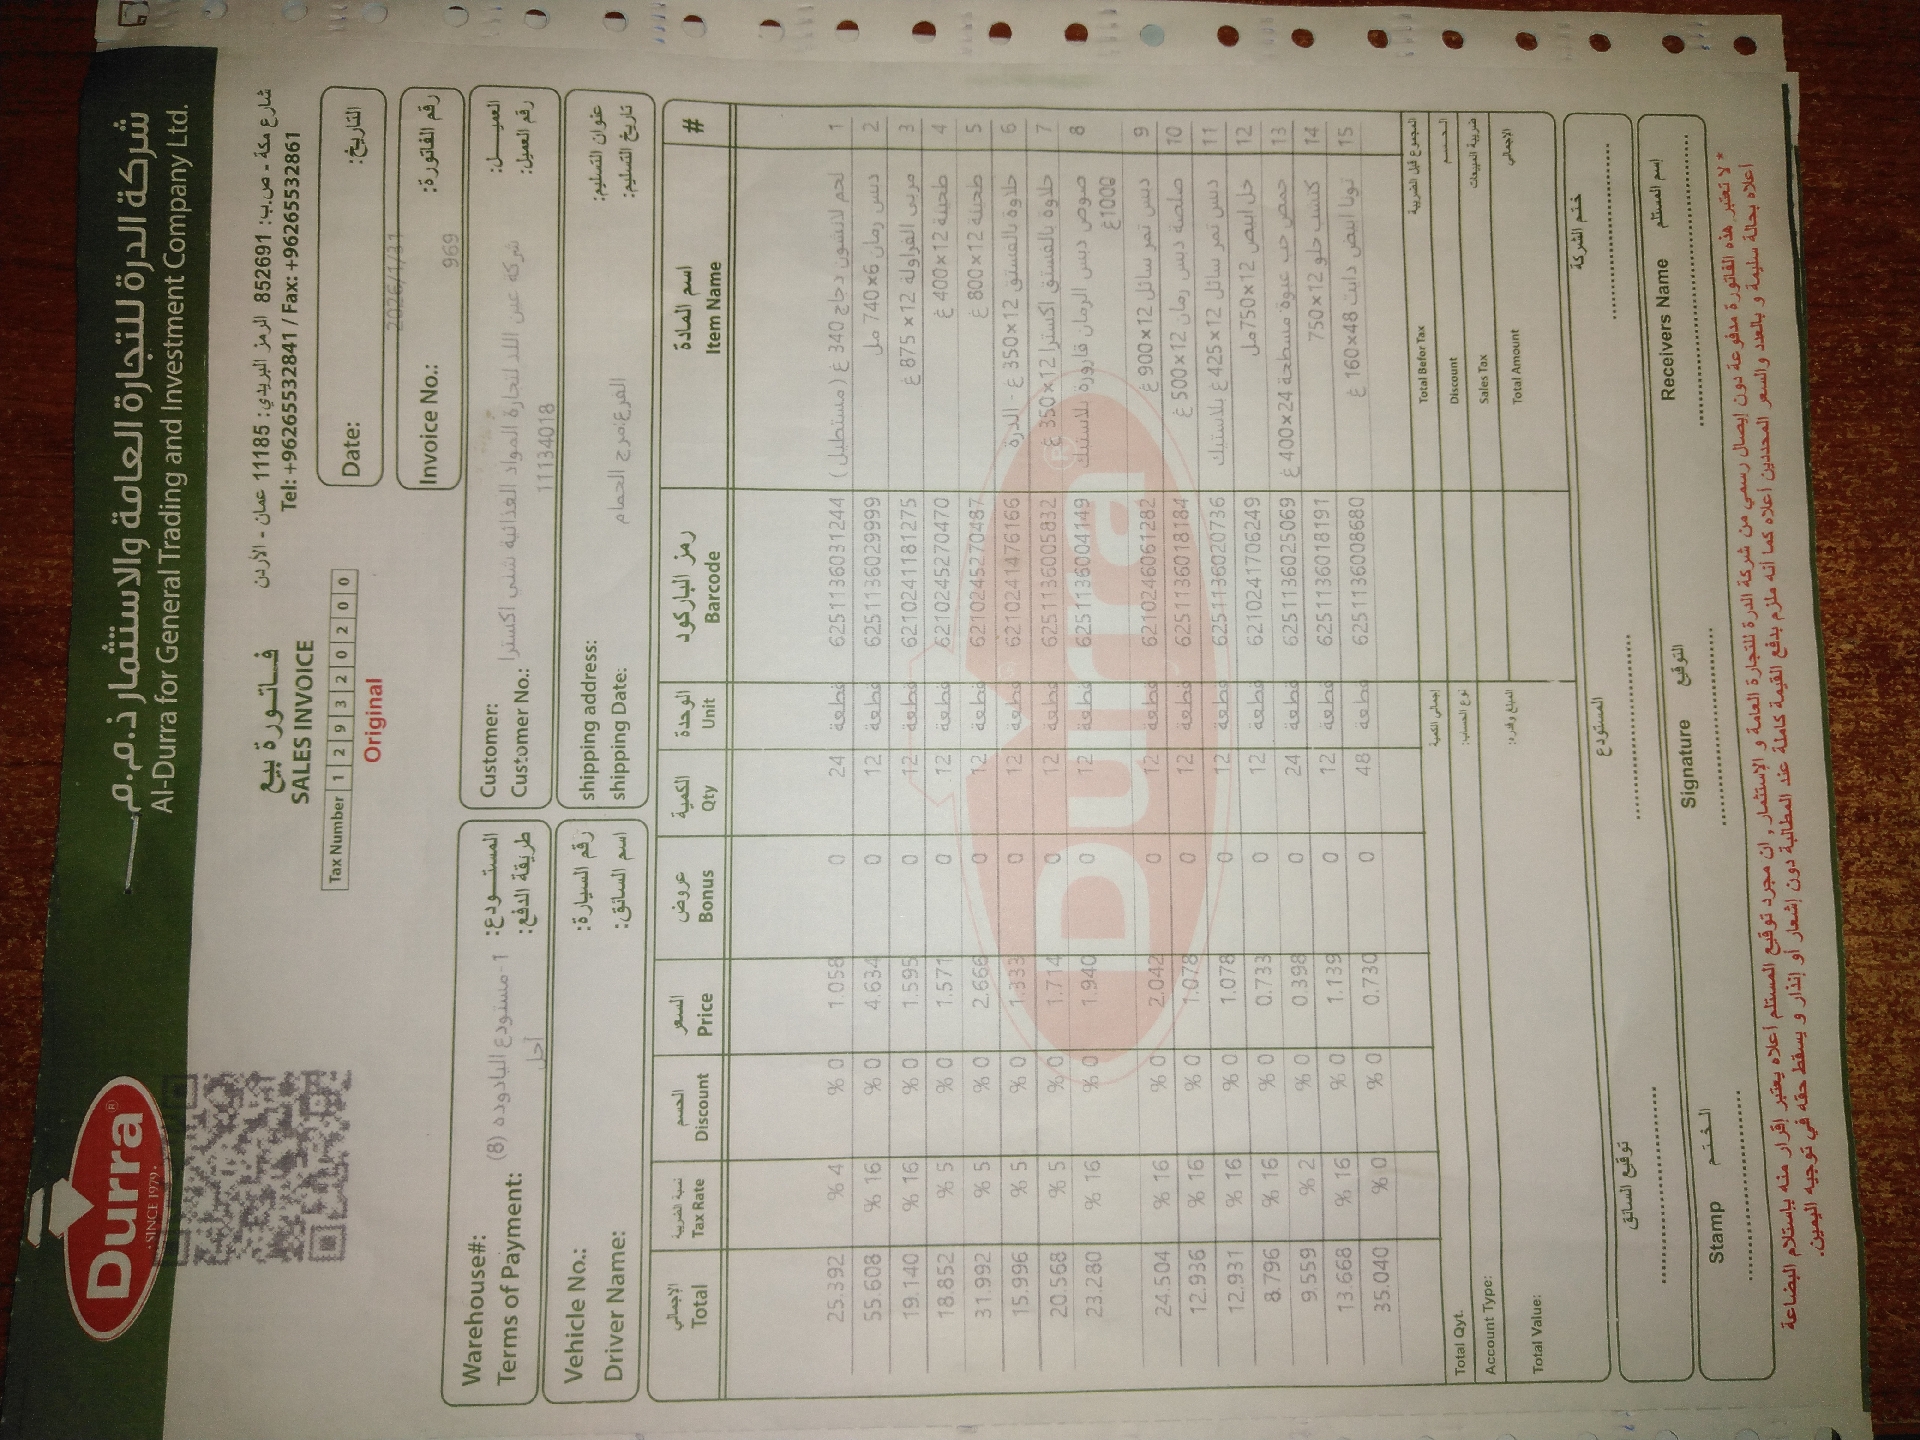 شركة الدرة للتجارة العامة والاستثمار ذ.م.م
Al-Durra for General Trading and Investment Company Ltd.
Durra ®
SINCE 1979
شارع مكة - ص.ب: 852691 الرمز البريدي: 11185 عمان - الأردن
Tel: +96265532841 / Fax: +96265532861
فاتورة بيع
SALES INVOICE
Tax Number 1 2 9 3 2 0 2 0 0
Original
Date: 2026/1/31 التاريخ:
Invoice No.: 969 رقم الفاتورة:
Customer: شركة عين اللد لتجارة المواد الغذائية شلبي اكسترا العميل:
Customer No.: 11134018 رقم العميل:
Warehouse#: 1-مستودع اليادوده (8) المستودع:
Terms of Payment: آجل طريقة الدفع:
shipping address: الفرع:مرج الحمام عنوان التسليم:
shipping Date: تاريخ التسليم:
Vehicle No.: رقم السيارة:
Driver Name: اسم السائق:
# اسم المادة رمز الباركود الوحدة الكمية عروض السعر الحسم نسبة الضريبة الإجمالي
# Item Name Barcode Unit Qty Bonus Price Discount Tax Rate Total
1 لحم لانشون دجاج 340 غ (مستطيل) 6251136031244 قطعة 24 0 1.058 % 0 % 4 25.392
2 دبس رمان 6×740 مل 6251136029999 قطعة 12 0 4.634 % 0 % 16 55.608
3 مربى الفراولة 12×875 غ 6210241181275 قطعة 12 0 1.595 % 0 % 16 19.140
4 طحينة 12×400 غ 6210245270470 قطعة 12 0 1.571 % 0 % 5 18.852
5 طحينة 12×800 غ 6210245270487 قطعة 12 0 2.666 % 0 % 5 31.992
6 حلاوة بالفستق 12×350 غ - الدرة 6210241476166 قطعة 12 0 1.333 % 0 % 5 15.996
7 حلاوة بالفستق اكسترا 12×350 غ 6251136005832 قطعة 12 0 1.714 % 0 % 5 20.568
8 صوص دبس الرمان قارورة بلاستيك 1000غ 6251136004149 قطعة 12 0 1.940 % 0 % 16 23.280
9 دبس تمر سائل 12×900 غ 6210246061282 قطعة 12 0 2.042 % 0 % 16 24.504
10 صلصة دبس رمان 12×500 غ 6251136018184 قطعة 12 0 1.078 % 0 % 16 12.936
11 دبس تمر سائل 12×425 غ بلاستيك 6251136020736 قطعة 12 0 1.078 % 0 % 16 12.931
12 خل ابيض 12×750 مل 6210241706249 قطعة 12 0 0.733 % 0 % 16 8.796
13 حمص حب عبوة مسطحة 24×400 غ 6251136025069 قطعة 24 0 0.398 % 0 % 2 9.559
14 كتشب حلو 12×750 6251136018191 قطعة 12 0 1.139 % 0 % 16 13.668
15 تونا ابيض دايت 48×160 غ 6251136008680 قطعة 48 0 0.730 % 0 % 0 35.040
Durra ®
Total Befor Tax المجموع قبل الضريبة
Discount الحسم
Sales Tax ضريبة المبيعات
Total Amount الإجمالي
Total Qyt. إجمالي الكمية
Account Type: نوع الحساب:
Total Value: المبلغ وقدره:
ختم الشركة
المستودع
توقيع السائق
Receivers Name إسم المستلم
Signature التوقيع
Stamp الختم
* لا تعتبر هذه الفاتورة مدفوعة دون إيصال رسمي من شركة الدرة للتجارة العامة و الإستثمار , ان مجرد توقيع المستلم أعلاه يعتبر إقرار منه بإستلام البضاعة
أعلاه بحالة سليمة و بالعدد والسعر المحددين أعلاه كما أنه ملزم بدفع القيمة كاملة عند المطالبة دون إشعار أو إنذار و يسقط حقه في توجيه اليمين.